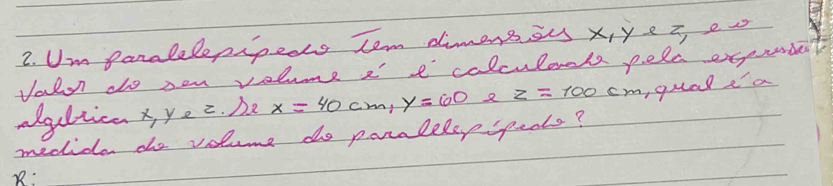 2. Um paralelepípedo tem dimensões x, y e z, e o
valor do seu volume é é calculado pela expressão
algébrica x, y e z. Se x = 40 cm, y = 60 e z = 100 cm, qual é a
medida do volume do paralelepípedo?
R: